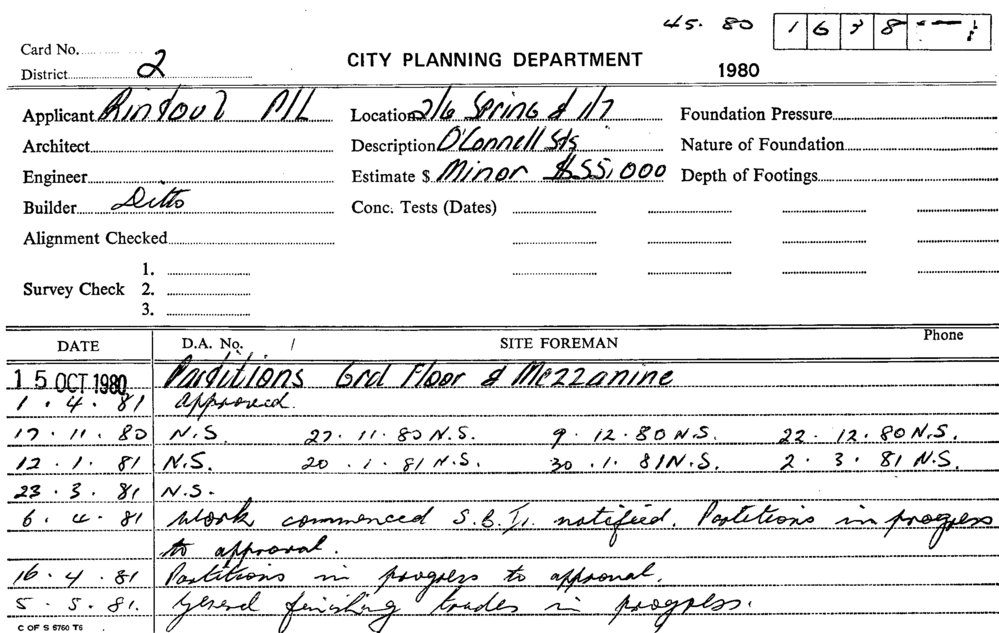 45. 80 1 6 7 8
Card No.
District 2 CITY PLANNING DEPARTMENT 1980
Applicant Rintoul P/L Location 2/6 Spring & 1/7 Foundation Pressure
Architect Description O'Connell Sts Nature of Foundation
Engineer Estimate $ Minor $55,000 Depth of Footings
Builder Ditto Conc. Tests (Dates)
Alignment Checked
1.
Survey Check 2.
3.
DATE D.A. No. / SITE FOREMAN Phone
15 OCT 1980 Partitions Grd Floor & Mezzanine
1. 4. 81 approved.
17. 11. 80 N.S. 27. 11. 80 N.S. 9. 12. 80 N.S. 22. 12. 80 N.S.
12. 1. 81 N.S. 20. 1. 81 N.S. 30. 1. 81 N.S. 2. 3. 81 N.S.
23. 3. 81 N.S.
6. 4. 81 Work commenced S.B.I. notified. Partitions in progress
to approval.
16. 4. 81 Partitions in progress to approval.
5. 5. 81. General finishing trades in progress.
C OF S 6760 T6